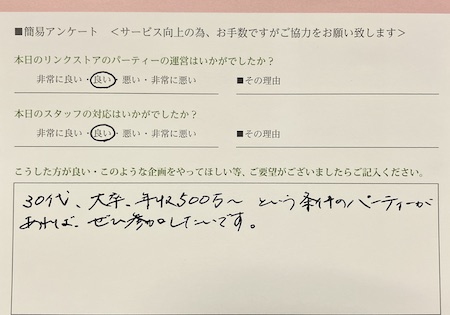 ■簡易アンケート　＜サービス向上の為、お手数ですがご協力をお願い致します＞
本日のリンクストアのパーティーの運営はいかがでしたか？
非常に良い・良い・悪い・非常に悪い　■その理由
本日のスタッフの対応はいかがでしたか？
非常に良い・良い・悪い・非常に悪い　■その理由
こうした方が良い・このような企画をやってほしい等、ご要望がございましたらご記入ください。
30代、大卒、年収500万～ という条件のパーティーが
あれば、ぜひ参加したいです。